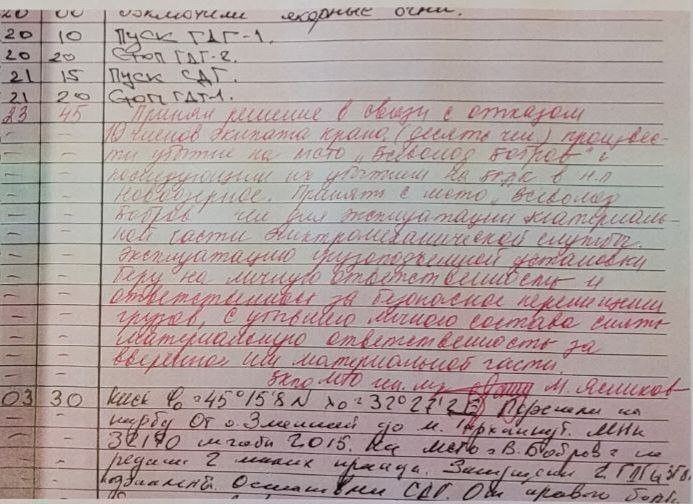 20 00 Включили якорные огни.
20 10 Пуск ГДГ-1.
20 20 Стоп ГДГ-2.
21 15 Пуск СДГ.
21 20 Стоп ГДГ-1.
23 45 Принял решение в связи с отказом
- - 10 членов экипажа крана (десять чел) произвес-
- - ти убытие на МСТО „Всеволод Бобров" с
- - последующим их убытием на в н.п
- - Новоозерное. Принять с МСТО „Всеволод
- - Бобров чел для эксплуатации материаль-
- - ной части электромеханической службы.
- - Эксплуатацию грузоподъемной установки
- - беру на личную ответственность и
- - ответственным за безопасное перемещении
- - грузов, с убывшего личного состава снять
- - материальную ответственность за
- - вверенной им материальной части.
М. Ясников
03 30 φ₀=45°15'8 N λ₀=32°27'2 E Перешли на
карту От о. Змеиный до м. Тархункут. МНК
32190 2015. На МСТО "В. Бобров" пе
редали 2 Запущены 2 ГДГ
СДГ. От правого борта